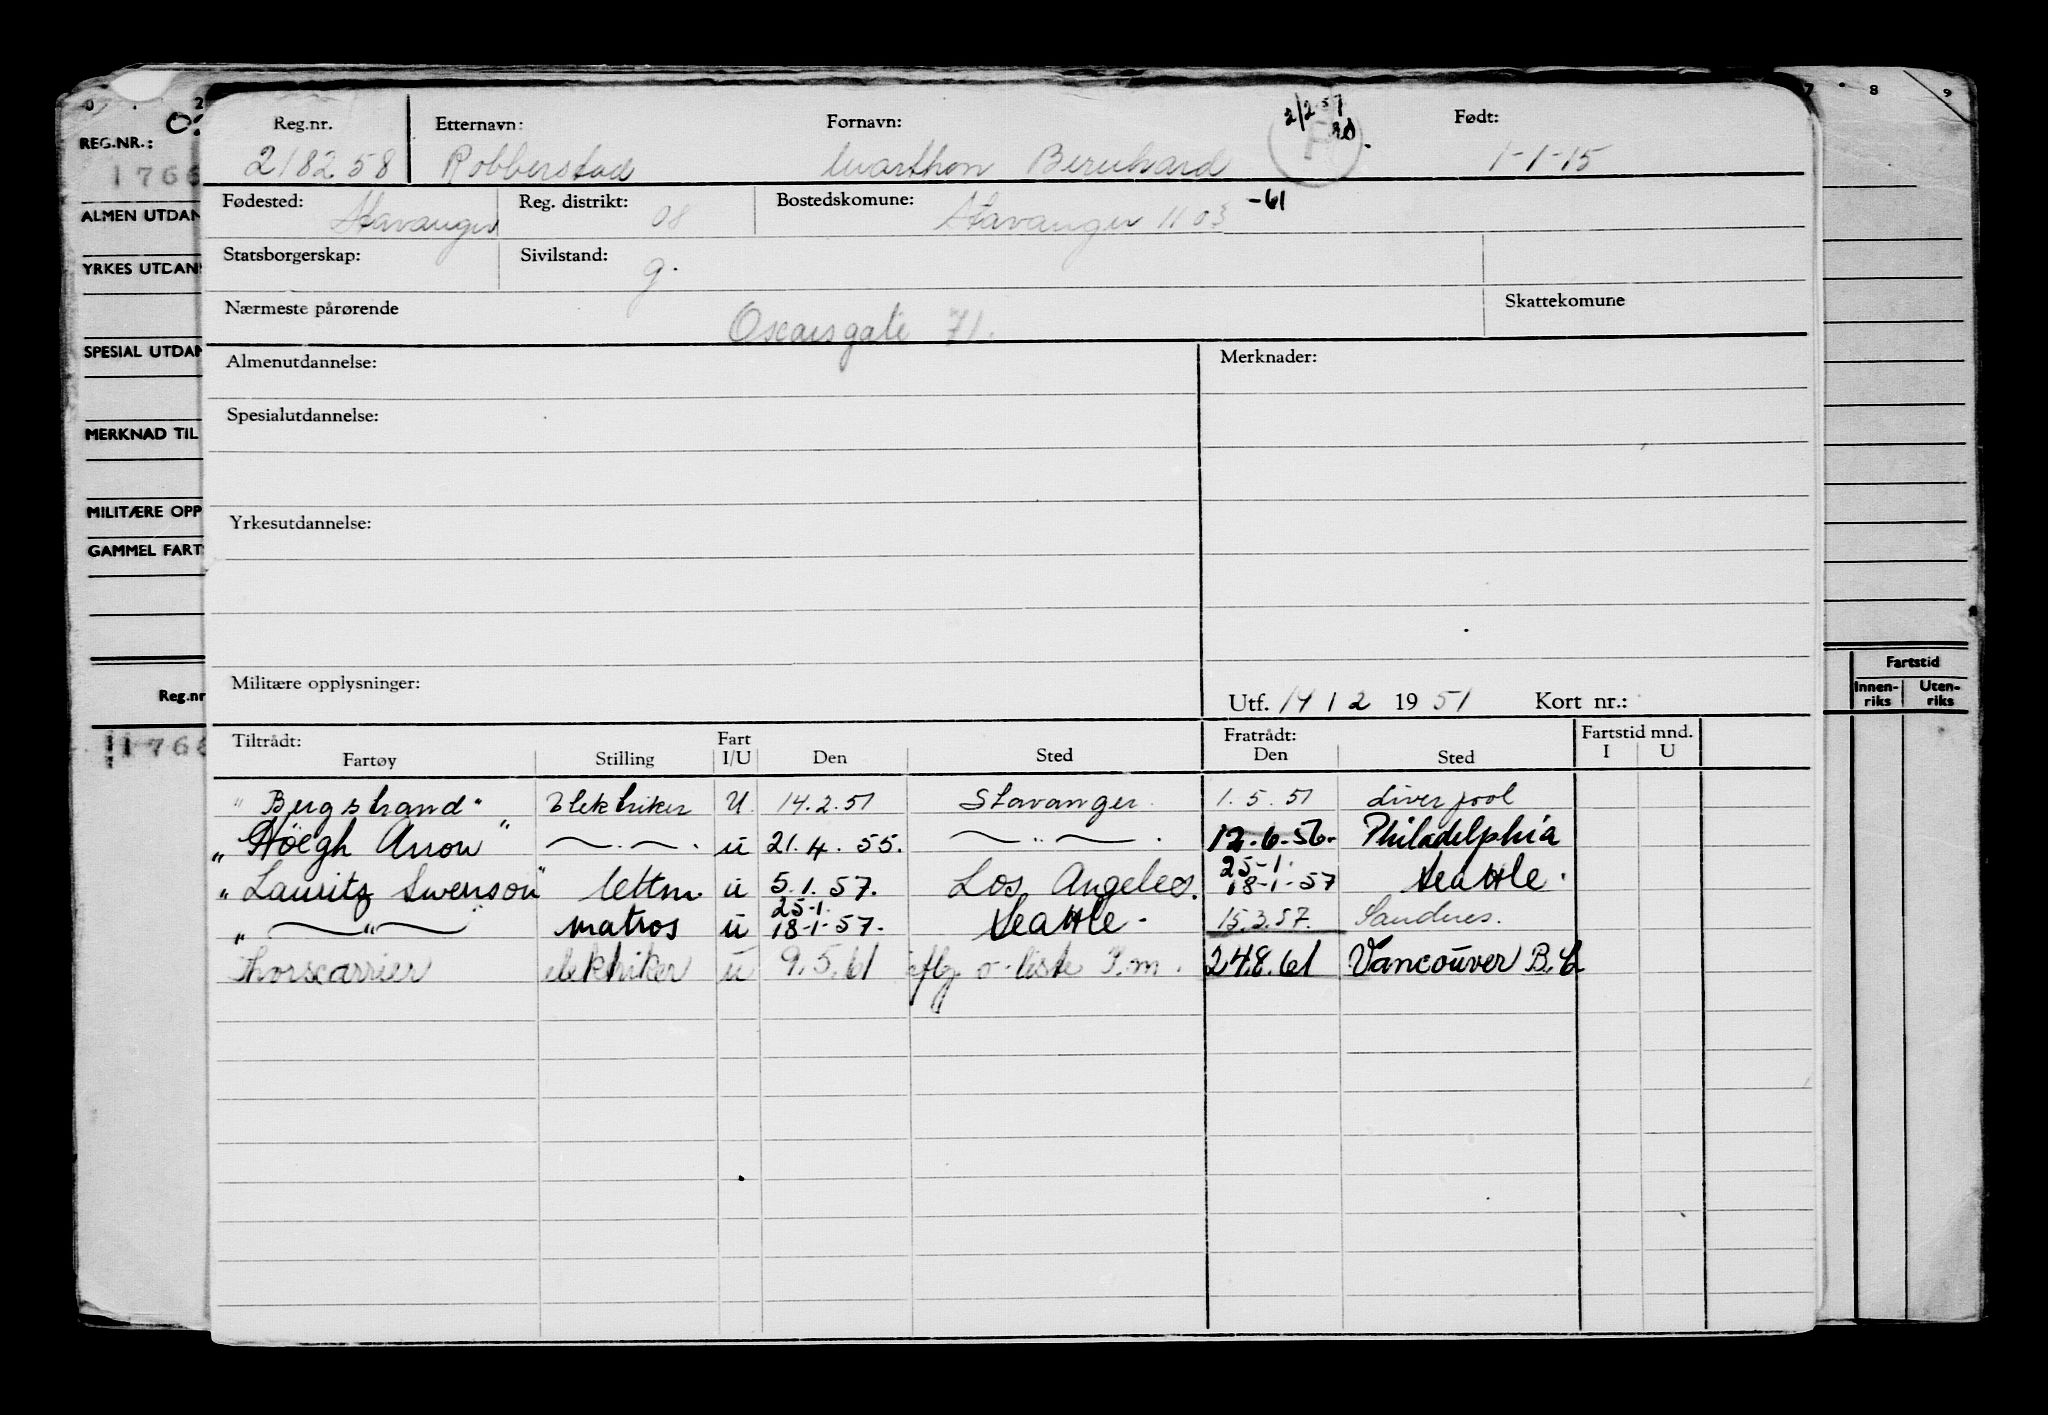 0 2 7 8 9
REG.NR.: 02
1766
ALMEN UTDAN
YRKES UTDANS
SPESIAL UTDAN
MERKNAD TIL
MILITÆRE OPP
GAMMEL FART
Reg.nr
1766
Fartstid
Innen-riks Uten-riks
Reg.nr. Etternavn: Fornavn: 2/2 57 Født:
218258 Robberstad Marthon Bernhard 1-1-15
Fødested: Stavanger Reg. distrikt: 08 Bostedskomune: Stavanger 1103 -61
Statsborgerskap: Sivilstand: g.
Nærmeste pårørende Oscarsgate 71. Skattekomune
Almenutdannelse: Merknader:
Spesialutdannelse:
Yrkesutdannelse:
Militære opplysninger:
Utf. 14 / 2 19 51 Kort nr.:
Tiltrådt: Fart Fratrådt: Fartstid mnd.
Fartøy Stilling I/U Den Sted Den Sted I U
"Bergstrand" Elektriker U. 14.2.51 Stavanger. 1.5.51 Liverpool
"Höegh Arrow" — . — . u 21.4.55. — " — . 12.6.56. Philadelphia
"Lauritz Swenson" lettm u 5.1.57. Los Angeles. 25-1. 18-1-57 Seattle.
" — " — matros u 25-1. 18-1-57. Seattle. 15.3.57. Sandnes.
Thorscarrier elektriker u 9.5.61 iflg o-liste 24.8.61 Vancouver B.C